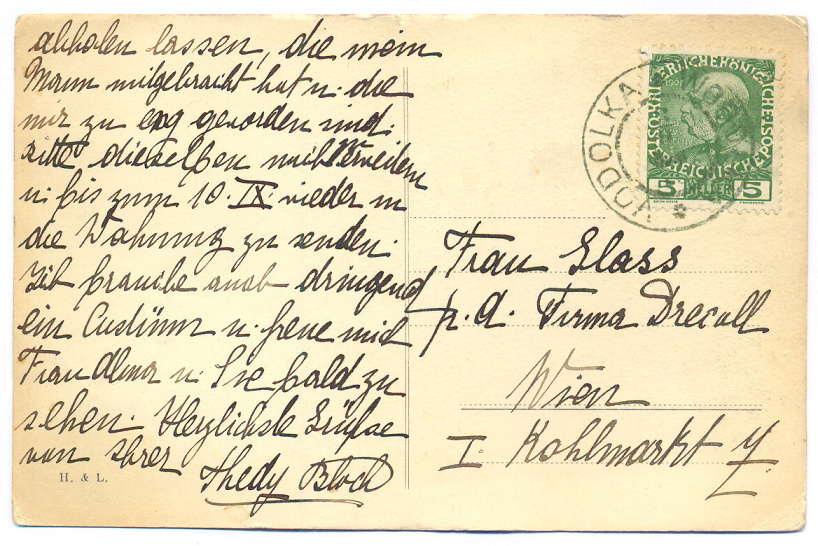 abholen lassen, die mein
Mann mitgebracht hat u. die
mir zu eng geworden sind.
Bitte dieselben nach Verweilern
u. bis zum 10. IX. wieder in
die Wohnung zu senden.
Ich brauche auch dringend
ein Custüm u. freue mich
Frau Alma u. Sie bald zu
sehen. Herzlichste Grüsse
von Ihrer
Thedy Bloch
H. & L.
VODOLKA
5 HELLER 5
Frau Glass
p. A. Firma Drecoll
Wien
I. Kohlmarkt 7